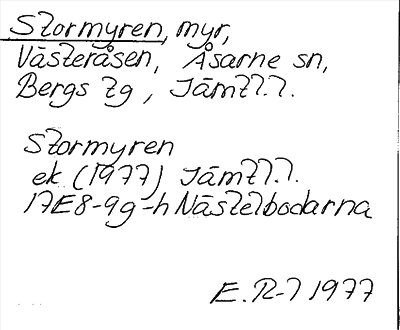 Stormyren, myr,
Västeråsen, Åsarne sn,
Bergs tg, Jämtl.l.
Stormyren
ek (1977) Jämtl.l.
17E8-9g-h Nästelbodarna
E.R-l 1977